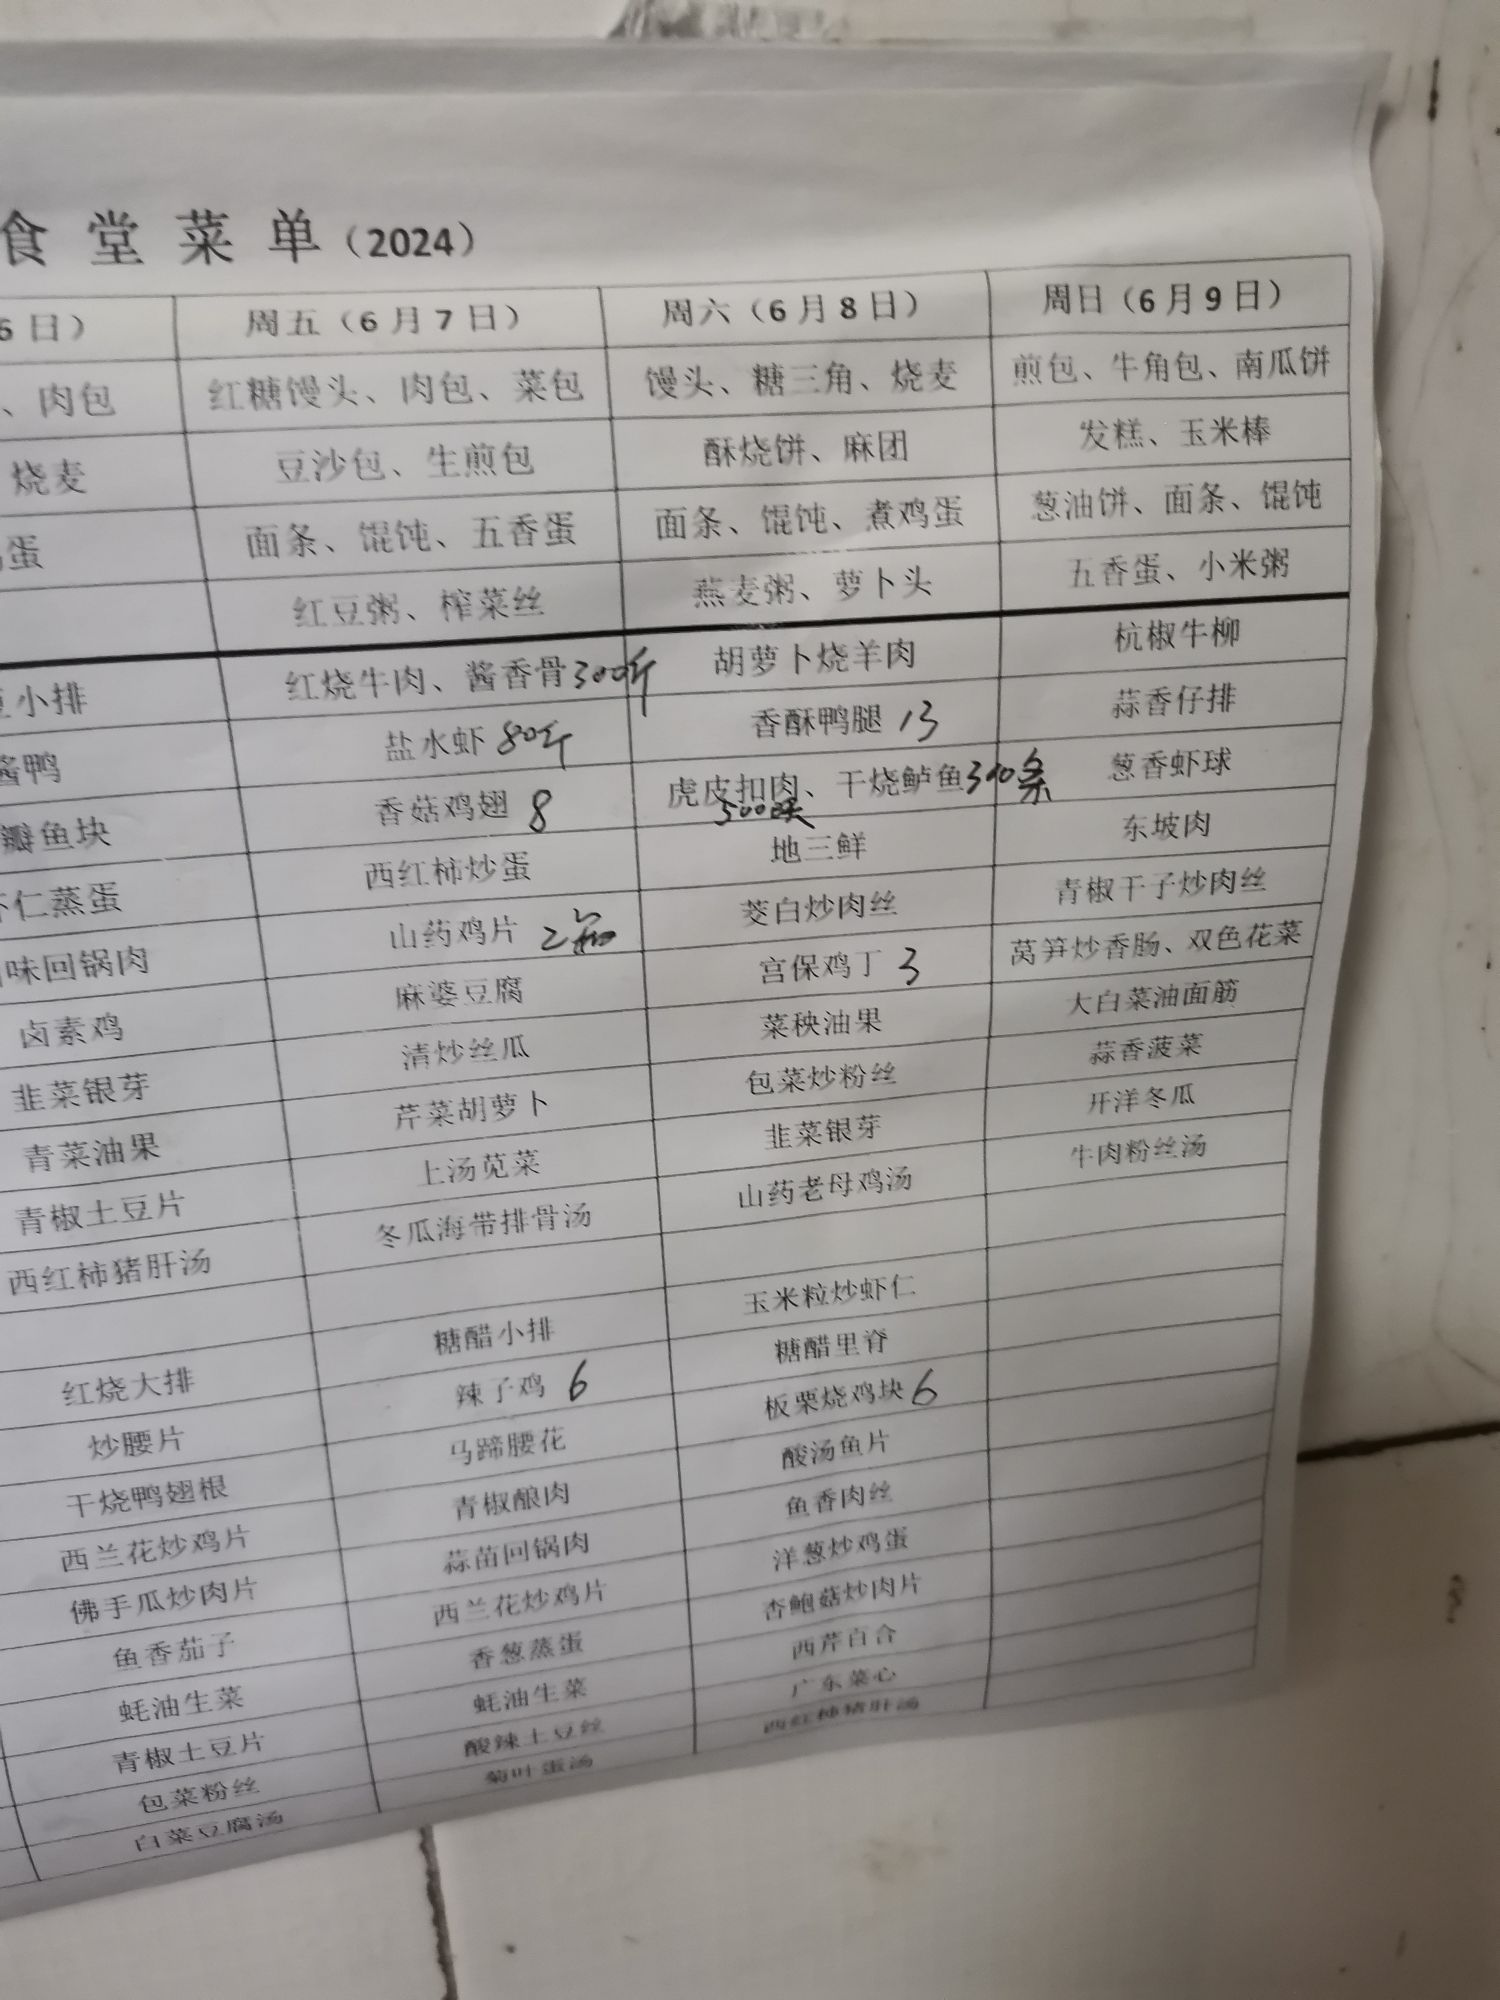 食堂菜单（2024）
日） 周五（6月7日） 周六（6月8日） 周日（6月9日）
、肉包 红糖馒头、肉包、菜包 馒头、糖三角、烧麦 煎包、牛角包、南瓜饼
烧麦 豆沙包、生煎包 酥烧饼、麻团 发糕、玉米棒
蛋 面条、馄饨、五香蛋 面条、馄饨、煮鸡蛋 葱油饼、面条、馄饨
红豆粥、榨菜丝 燕麦粥、萝卜头 五香蛋、小米粥
小排 红烧牛肉、酱香骨300斤 胡萝卜烧羊肉 杭椒牛柳
酱鸭 盐水虾 80斤 香酥鸭腿 13 蒜香仔排
瓣鱼块 香菇鸡翅 8 虎皮扣肉、干烧鲈鱼 条 葱香虾球
500块
仁蒸蛋 西红柿炒蛋 地三鲜 东坡肉
味回锅肉 山药鸡片 2 茭白炒肉丝 青椒干子炒肉丝
卤素鸡 麻婆豆腐 宫保鸡丁 3 莴笋炒香肠、双色花菜
韭菜银芽 清炒丝瓜 菜秧油果 大白菜油面筋
青菜油果 芹菜胡萝卜 包菜炒粉丝 蒜香菠菜
青椒土豆片 上汤苋菜 韭菜银芽 开洋冬瓜
西红柿猪肝汤 冬瓜海带排骨汤 山药老母鸡汤 牛肉粉丝汤
红烧大排 糖醋小排 玉米粒炒虾仁
炒腰片 辣子鸡 6 糖醋里脊
干烧鸭翅根 马蹄腰花 板栗烧鸡块 6
西兰花炒鸡片 青椒酿肉 酸汤鱼片
佛手瓜炒肉片 蒜苗回锅肉 鱼香肉丝
鱼香茄子 西兰花炒鸡片 洋葱炒鸡蛋
蚝油生菜 香葱蒸蛋 杏鲍菇炒肉片
青椒土豆片 蚝油生菜 西芹百合
包菜粉丝 酸辣土豆丝 广东菜心
白菜豆腐汤 菊叶蛋汤 西红柿猪肝汤